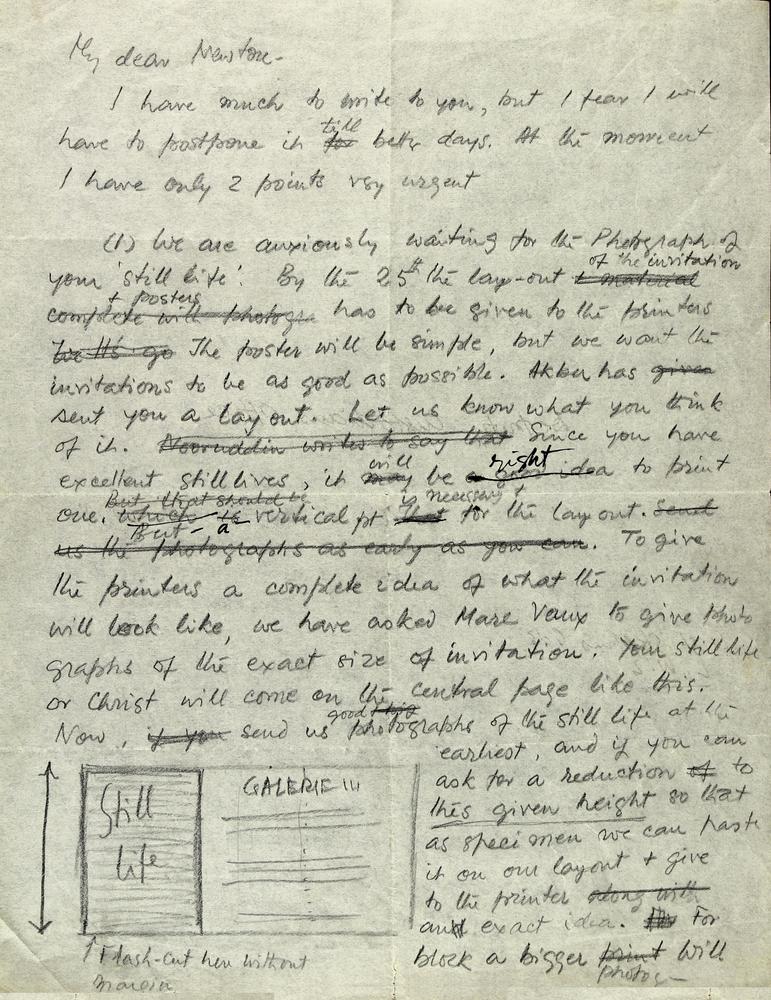 My dear Newton-
I have much to write to you, but I fear I will
have to postpone it till for better days. At the moment
I have only 2 points very urgent
(1) We are anxiously waiting for the Photograph of
your 'still life'. By the 25th the lay-out of the invitation & material
+ posters
complete will photogra has to be given to the printers
The poster will be simple, but we want the
invitations to be as good as possible. Akbar has given
sent you a lay out. Let us know what you think
of it. Nooruddin writes to say that Since you have
excellent still lives, it will may be a right idea to print
But that should be is necessary
one. which is vertical pt that for the lay out. Send
But - a
us the photographs as early as you can. To give
the printers a complete idea of what the invitation
will look like, we have asked Marc Vaux to give photo
graphs of the exact size of invitation. Your still life
or Christ will come on the central page like this.
Now, if you send us good this photographs of the still life at the
earliest, and if you can
ask for a reduction of to
this given height so that
as specimen we can paste
it on our layout + give
to the printer along with
and exact idea. For
block a bigger print will
photog-
Still
life
GALERIE III
↑ Flash-cut here without
margin